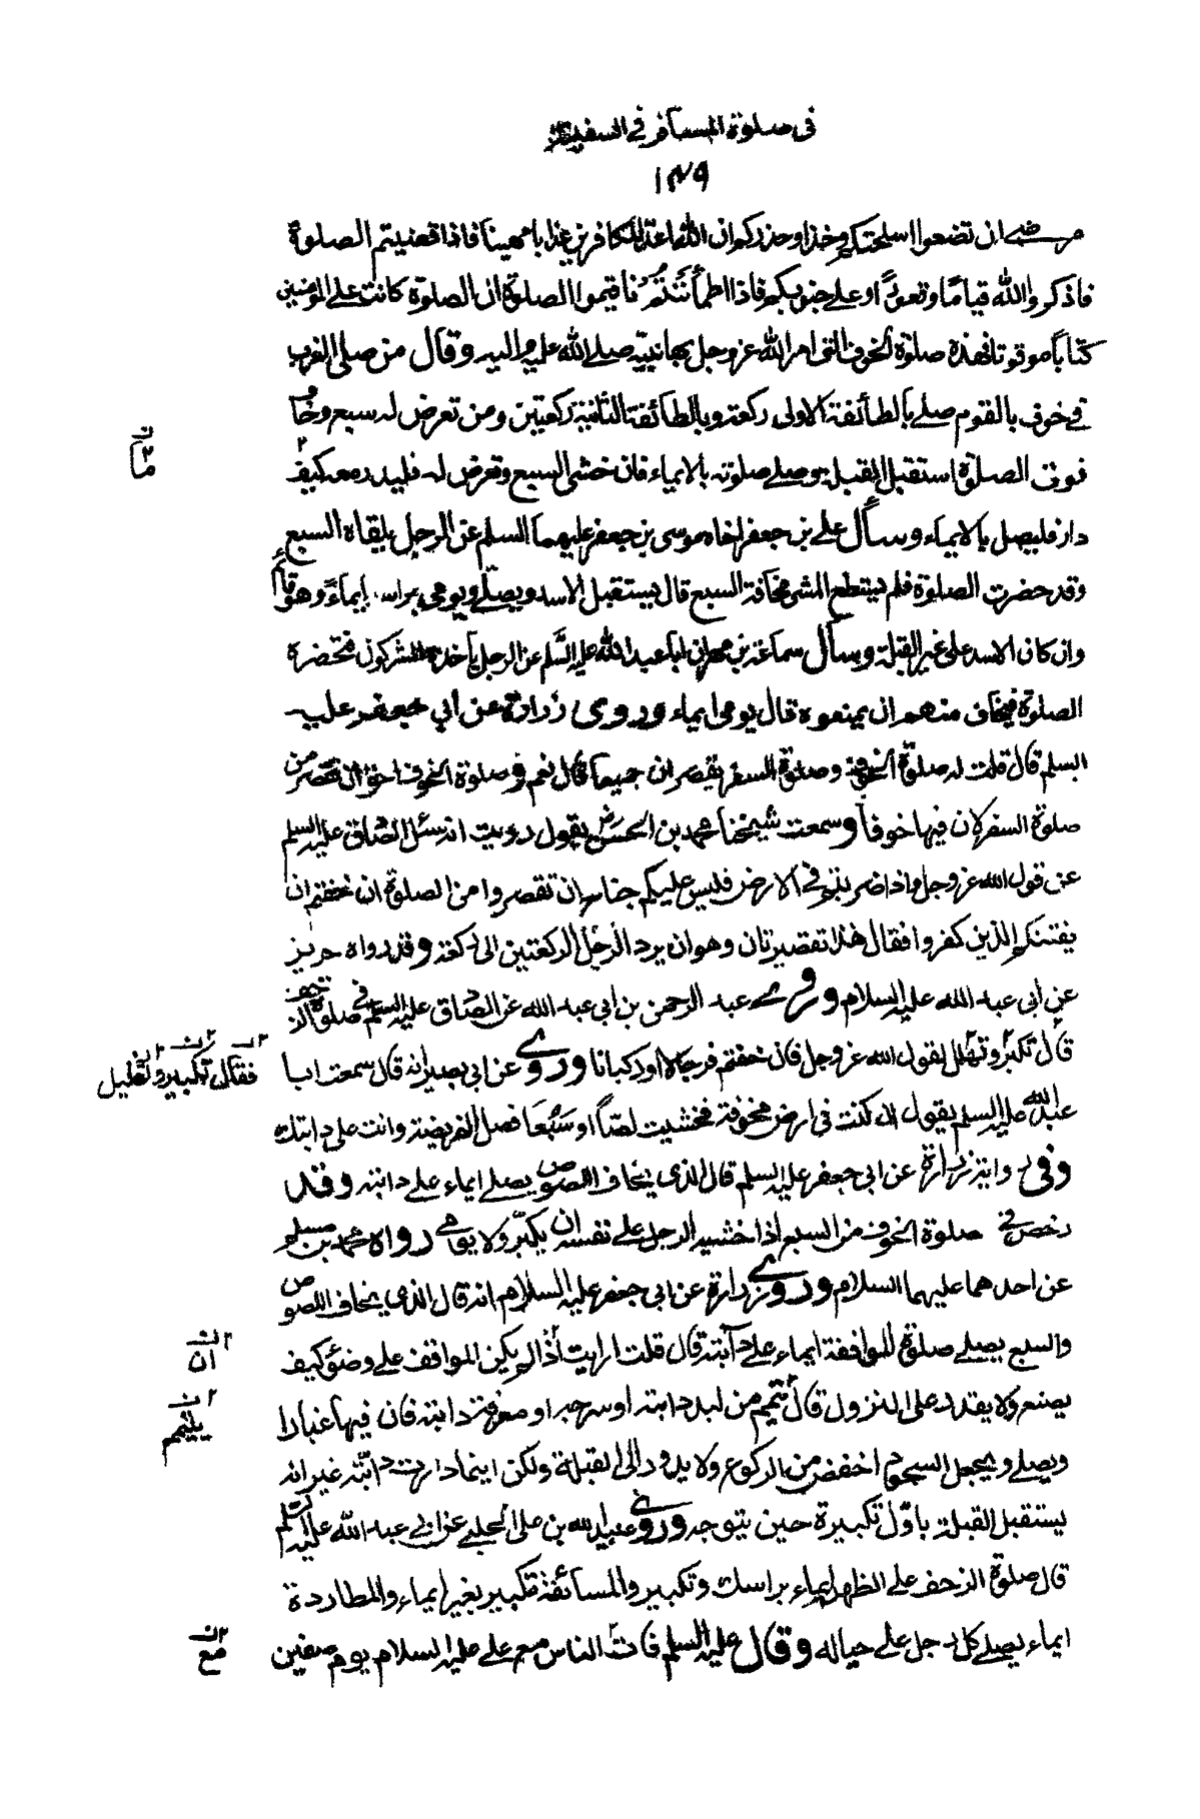 في صلوة المسافر في السفينة
١٤٩
مرضى ان تضعوا اسلحتكم وخذوا حذركم ان الله اعد للكافرين عذابا مهينا فاذا قضيتم الصلوة
فاذكروا الله قياما وقعودا وعلى جنوبكم فاذا اطمأننتم فاقيموا الصلوة ان الصلوة كانت على المؤمنين
كتابا موقوتا فهذه صلوة الخوف التي امر الله عز وجل بها نبيه صلى الله عليه واله وقال من صلى المغرب
في خوف بالقوم صلى بالطائفة الاولى ركعة وبالطائفة الثانية ركعتين ومن تعرض له سبع وخاف
فوت الصلوة استقبل القبلة وصلى صلوته بالايماء فان خشى السبع وتعرض له فليدر معه كيف
ما
دار فليصل بالايماء وسأل علي بن جعفر اخاه موسى بن جعفر عليهما السلم عن الرجل يلقاه السبع
وقد حضرت الصلوة فلم يستطع المشي مخافة السبع قال يستقبل الاسد ويصلي ويومي براسه ايماء وهو قائم
وان كان الاسد على غير القبلة وسأل سماعة بن مهران ابا عبد الله عليه السلم عن الرجل يأخذه المشركون فتحضره
الصلوة فيخاف منهم ان يمنعوه قال يومي ايماء وروى زرارة عن ابي جعفر عليه
السلم قال قلت له صلوة الخوف وصلوة السفر يقصران جميعا قال نعم وصلوة الخوف احق ان تقصر من
صلوة السفر لان فيها خوفا وسمعت شيخنا محمد بن الحسن رض يقول رويت انه سئل الصادق عليه السلم
عن قول الله عز وجل واذا ضربتم في الارض فليس عليكم جناح ان تقصروا من الصلوة ان خفتم ان
يفتنكم الذين كفروا فقال هذا تقصير ثان وهو ان يرد الرجل الركعتين الى ركعة وقد رواه حريز
عن ابي عبد الله عليه السلام وروى عبد الرحمن بن ابي عبد الله عن الصادق عليه السلم في صلوة الزحف
قال تكبر وتهلل لقول الله عز وجل فان خفتم فرجالا او ركبانا وروى عن ابي بصير انه قال سمعت ابا
فقال تكبير وتهليل
عبد الله عليه السلم يقول ان كنت في ارض مخوفة فخشيت لصا او سبعا فصل الفريضة وانت على دابتك
وفي رواية زرارة عن ابي جعفر عليه السلم قال الذي يخاف اللصوص يصلي ايماء على دابته وقد
رخص في صلوة الخوف من السبع اذا خشيه الرجل على نفسه ان يكبر ولا يومي رواه محمد بن مسلم
عن احدهما عليهما السلام وروى زرارة عن ابي جعفر عليه السلام انه قال الذي يخاف اللصوص
والسبع يصلي صلوة المواقفة ايماء على دابته قال قلت ارايت اذا لم يكن المواقف على وضوء كيف
ان
يصنع ولا يقدر على النزول قال تيمم من لبد دابته او سرجه او معرفة دابته فان فيها غبارا
يتيمم
ويصلي ويجعل السجود اخفض من الركوع ولا يدور الى القبلة ولكن اينما دارت دابته غير انه
يستقبل القبلة باول تكبيرة حين يتوجه وروى عبيد الله بن علي الحلبي عن ابي عبد الله عليه السلم
قال صلوة الزحف على الظهر ايماء براسك وتكبير والمسائفة تكبير بغير ايماء والمطاردة
ايماء يصلي كل رجل على حياله وقال عليه السلم فات الناس مع علي عليه السلام يوم صفين
مع